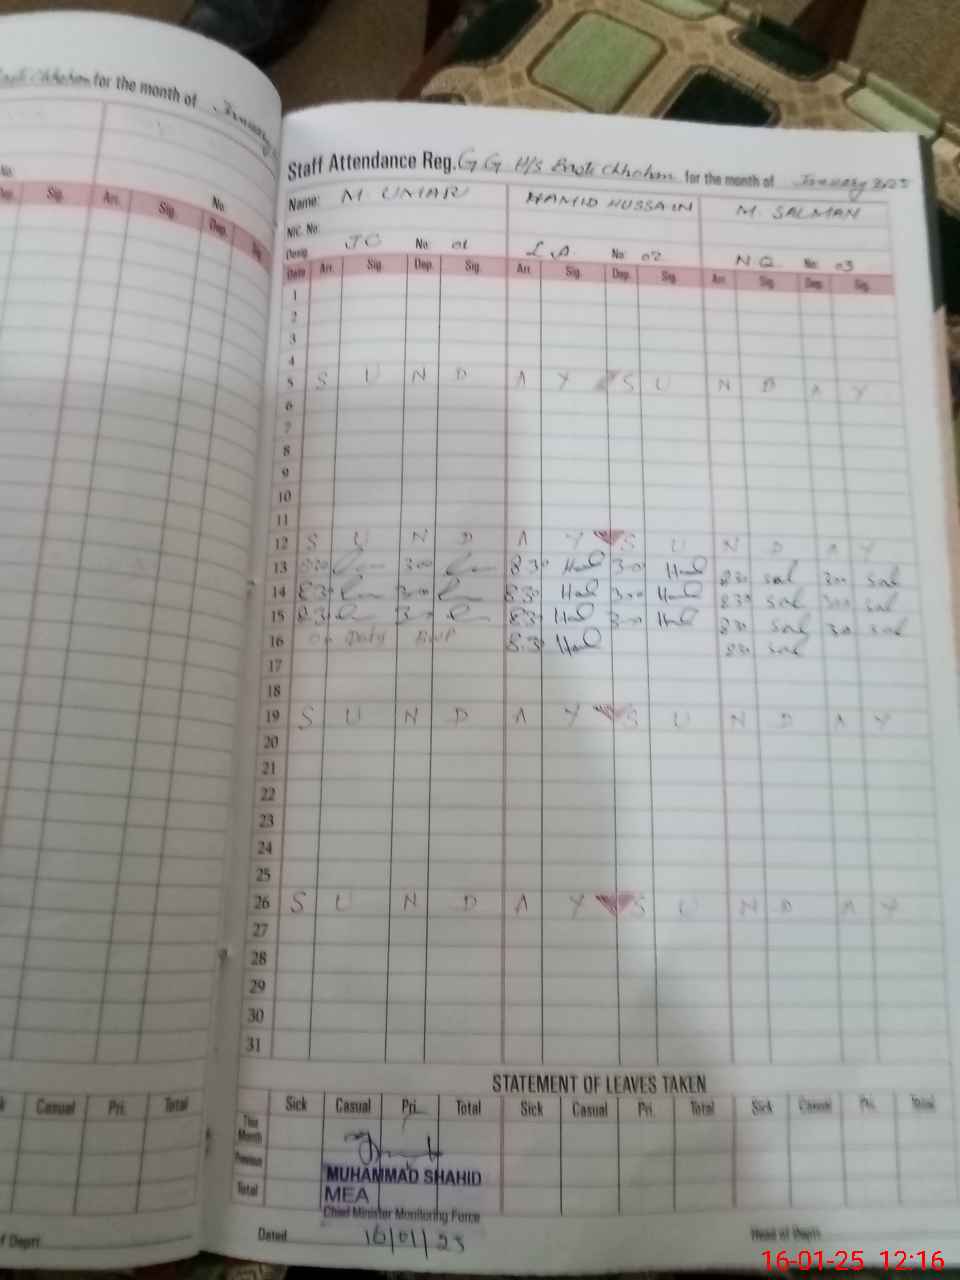 for the month of January
No
Sig. Arr. Sig. Dep. Sig.
Staff Attendance Reg. G G H/S Chhohan for the month of January 2025
Name: M UMAR HAMID HUSSAIN M. SALMAN
NIC. No:
Desig. JC No: 01 L.A. No: 02 N Q No: 03
Date Arr. Sig. Dep. Sig. Arr. Sig. Dep. Sig. Arr. Sig. Dep. Sig.
1
2
3
4
5 S U N D A Y S U N D A Y
6
7
8
9
10
11
12 S U N D A Y S U N D A Y
13 300 830 Haml 300 Haml 830 sal 300 sal
14 830 300 830 Hal 300 Hal 830 sal 300 sal
15 830 300 830 Hal 300 Hal 830 sal 300 sal
16 on Duty 830 Haml 830 sal
17
18
19 S U N D A Y S U N D A Y
20
21
22
23
24
25
26 S U N D A Y S U N D A Y
27
28
29
30
31
STATEMENT OF LEAVES TAKEN
Casual Pri. Total Sick Casual Pri. Total Sick Casual Pri. Total Sick Casual Pri. Total
This Month
Previous
Total
MUHAMMAD SHAHID
MEA
Chief Minister Monitoring Force
f Deptt Dated 16/01/25 Head of Deptt.
16-01-25 12:16